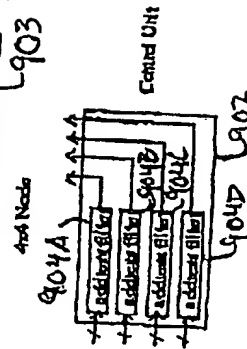 903
4x4 Node
Control Unit
904A
904B
904C
904D
902
address filter
address filter
address filter
address filter